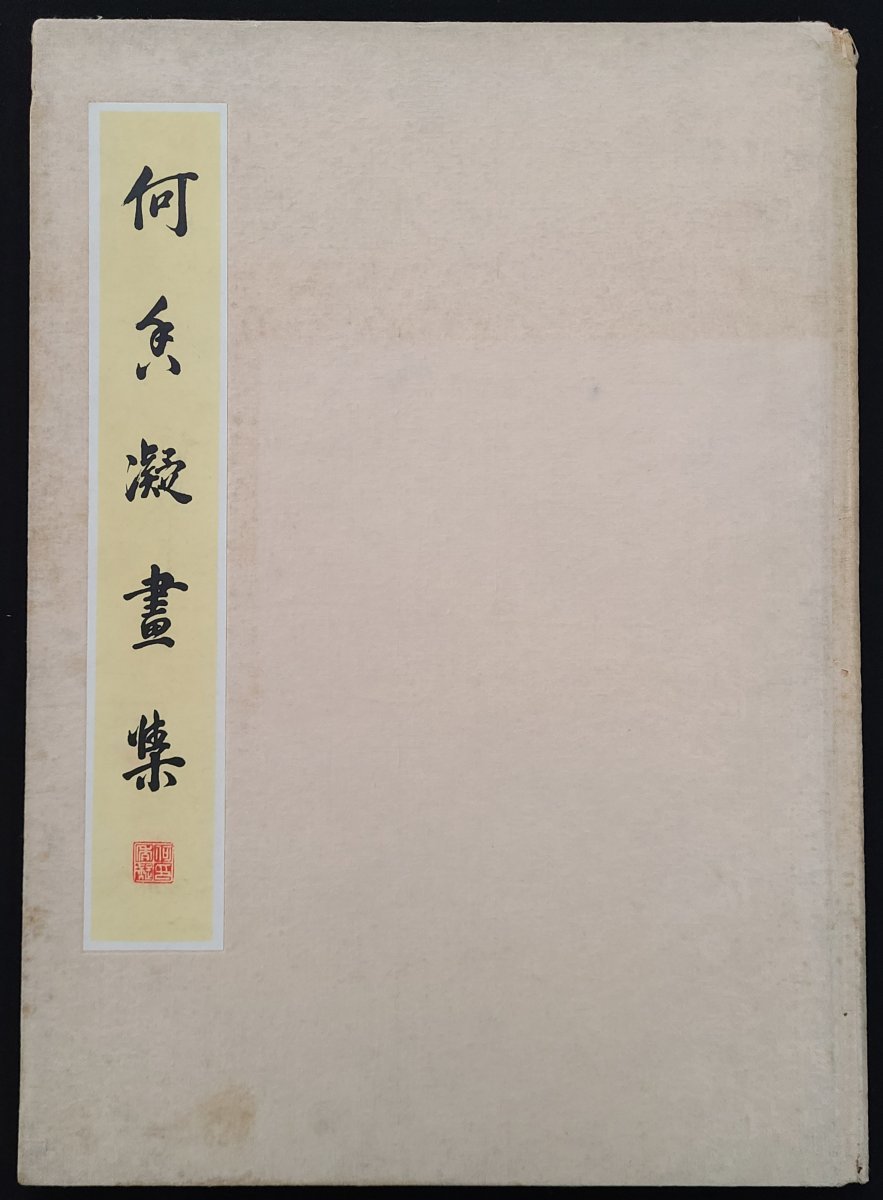 何香凝畫集